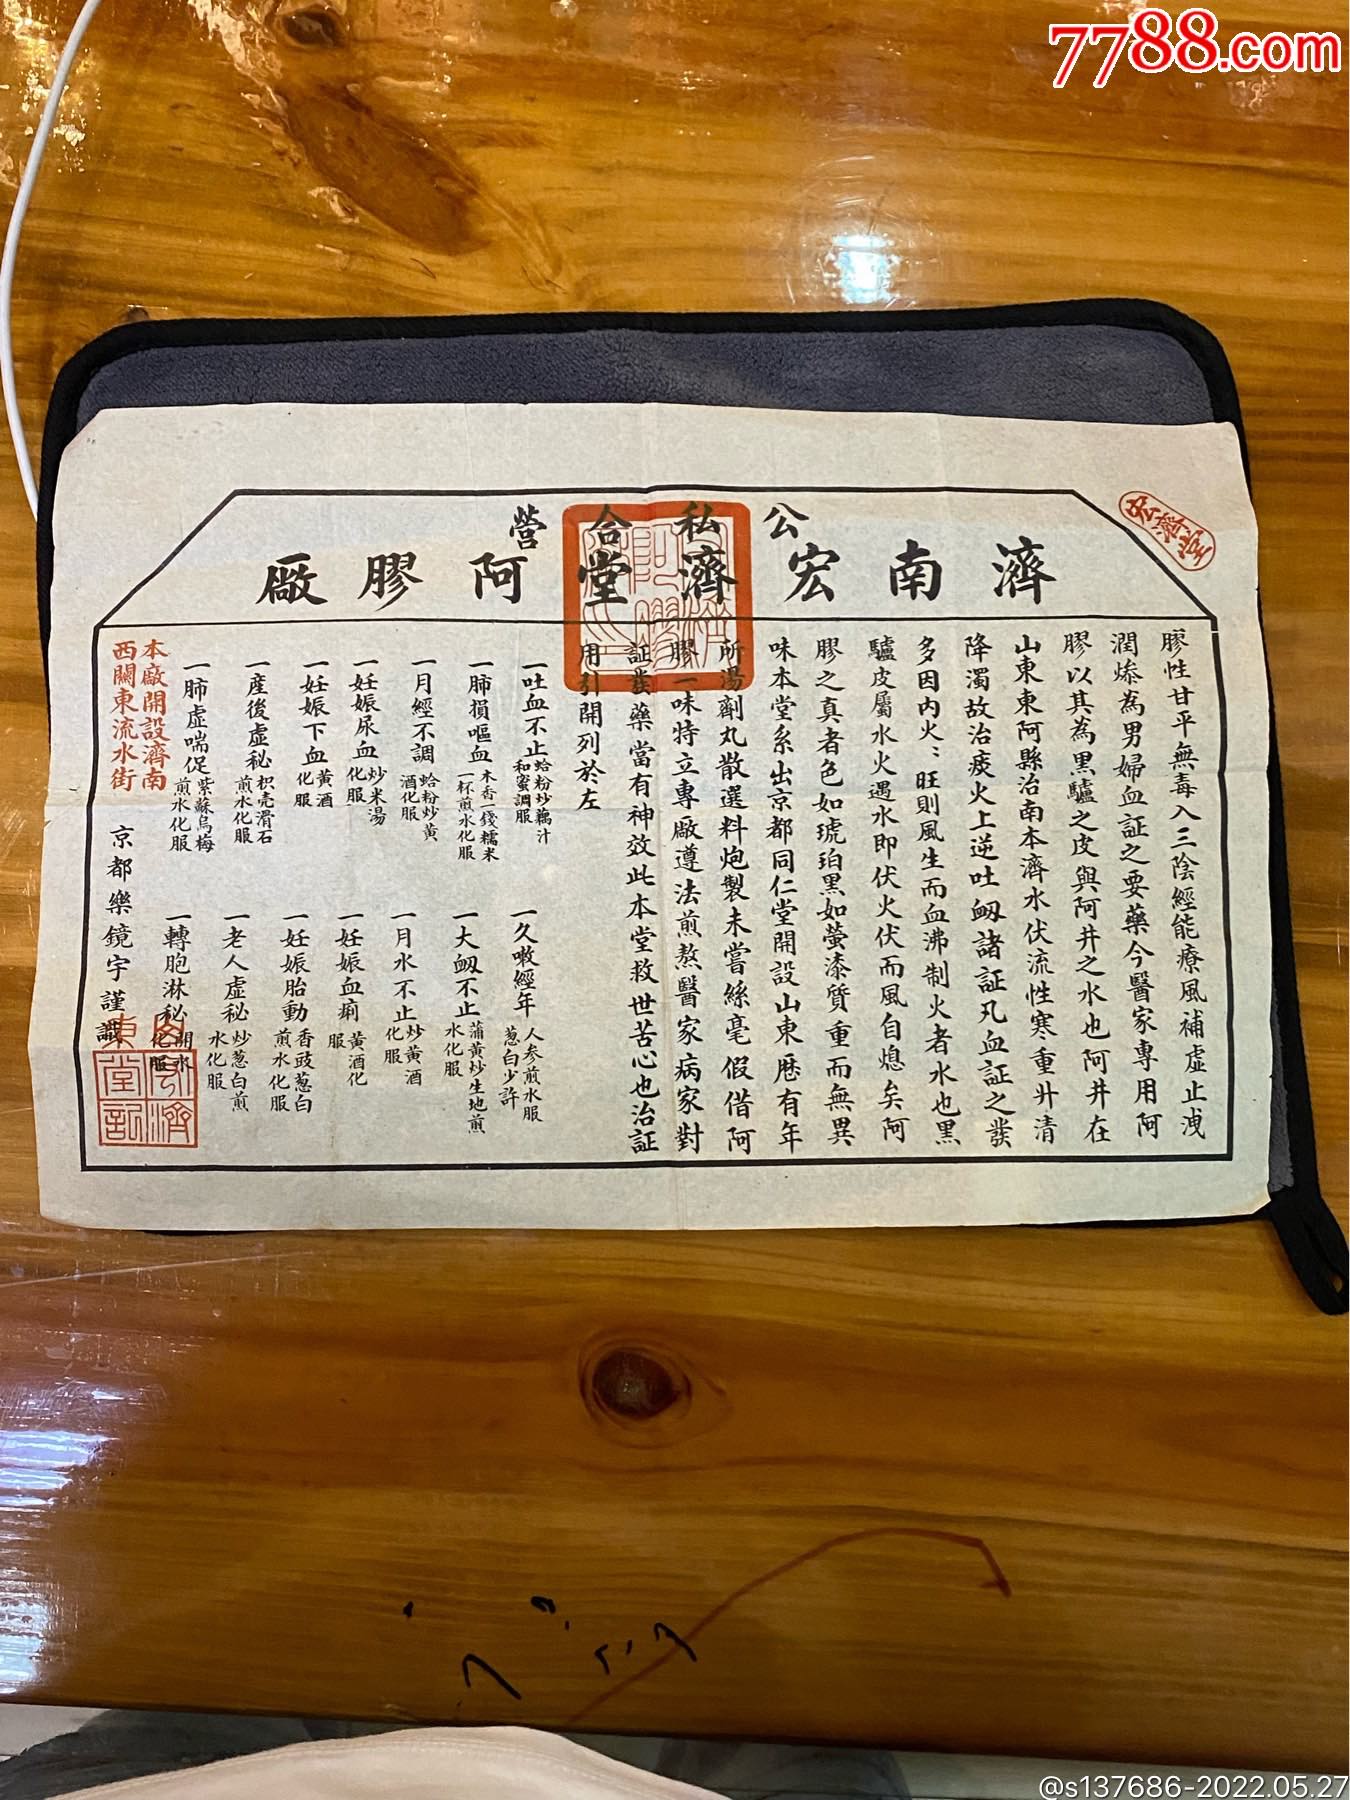 7788.com
宏濟堂
公私合營
濟南宏濟堂阿膠廠
膠性甘平無毒入三陰經能療風補虛止洩
潤燥為男婦血証之要藥今醫家專用阿
膠以其為黑驢之皮與阿井之水也阿井在
山東東阿縣治南本濟水伏流性寒重升清
降濁故治痰火上逆吐衂諸証凡血証之發
多因內火旺則風生而血沸制火者水也黑
驢皮屬水火遇水即伏火伏而風自熄矣阿
膠之真者色如琥珀黑如螢漆質重而無異
味本堂系出京都同仁堂開設山東歷有年
所湯劑丸散選料炮製未嘗絲毫假借阿
膠一味特立專廠遵法煎熬醫家病家對
証發藥當有神效此本堂救世苦心也治証
用引開列於左
一吐血不止 蛤粉炒藕汁和蜜調服
一久嗽經年 人参煎水服葱白少許
一肺損嘔血 木香一錢糯米一杯煎水化服
一大衂不止 蒲黄炒生地煎水化服
一月經不調 蛤粉炒黄酒化服
一月水不止 炒黄酒化服
一妊娠尿血 炒米湯化服
一妊娠血痢 黄酒化服
一妊娠下血 黄酒化服
一妊娠胎動 香豉葱白煎水化服
一產後虛秘 枳壳滑石煎水化服
一老人虛秘 炒葱白煎水化服
一肺虛喘促 紫蘇烏梅煎水化服
一轉胞淋秘 開水化服
本廠開設濟南
西關東流水街
京都樂鏡宇謹識
@s137686-2022.05.27